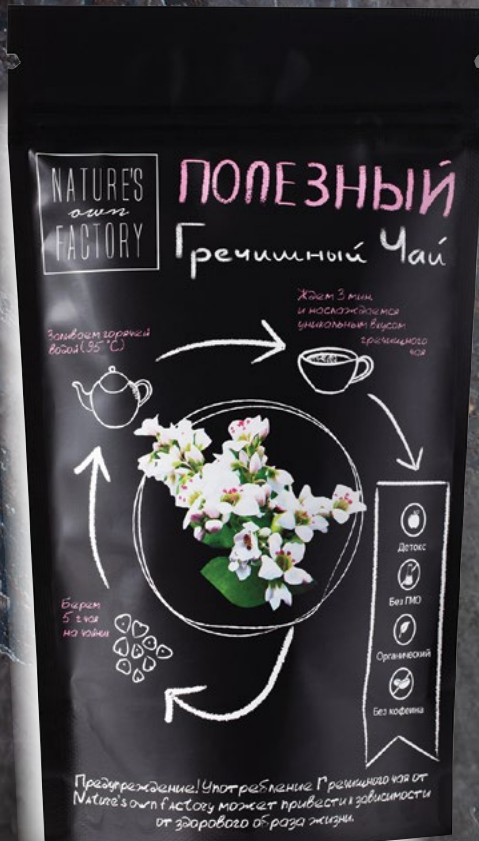 NATURE'S
own
FACTORY
ПОЛЕЗНЫЙ
Гречишный Чай
Ждем 3 мин
и наслаждаемся
уникальным вкусом
гречишного
чая
Заливаем горячей
водой (95°C)
Берем
5 г чая
на чайник
Детокс
Без ГМО
Органический
Без кофеина
Предупреждение! Употребление Гречишного чая от
Nature's own factory может привести к зависимости
от здорового образа жизни.